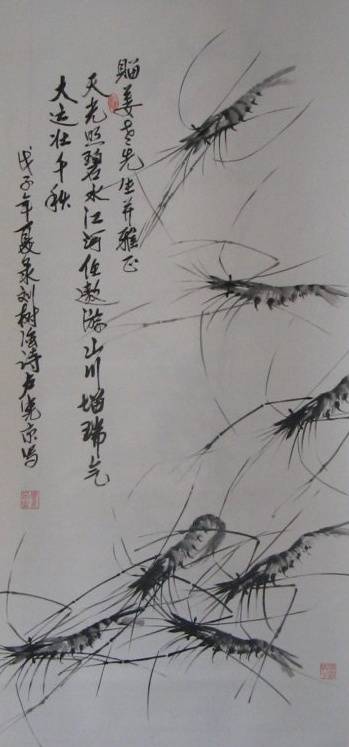 赐姜老先生并雅正
天光照碧水江河任遨游山川增瑞气
大运壮千秋
戊子年夏录刘树滨诗卢光京写